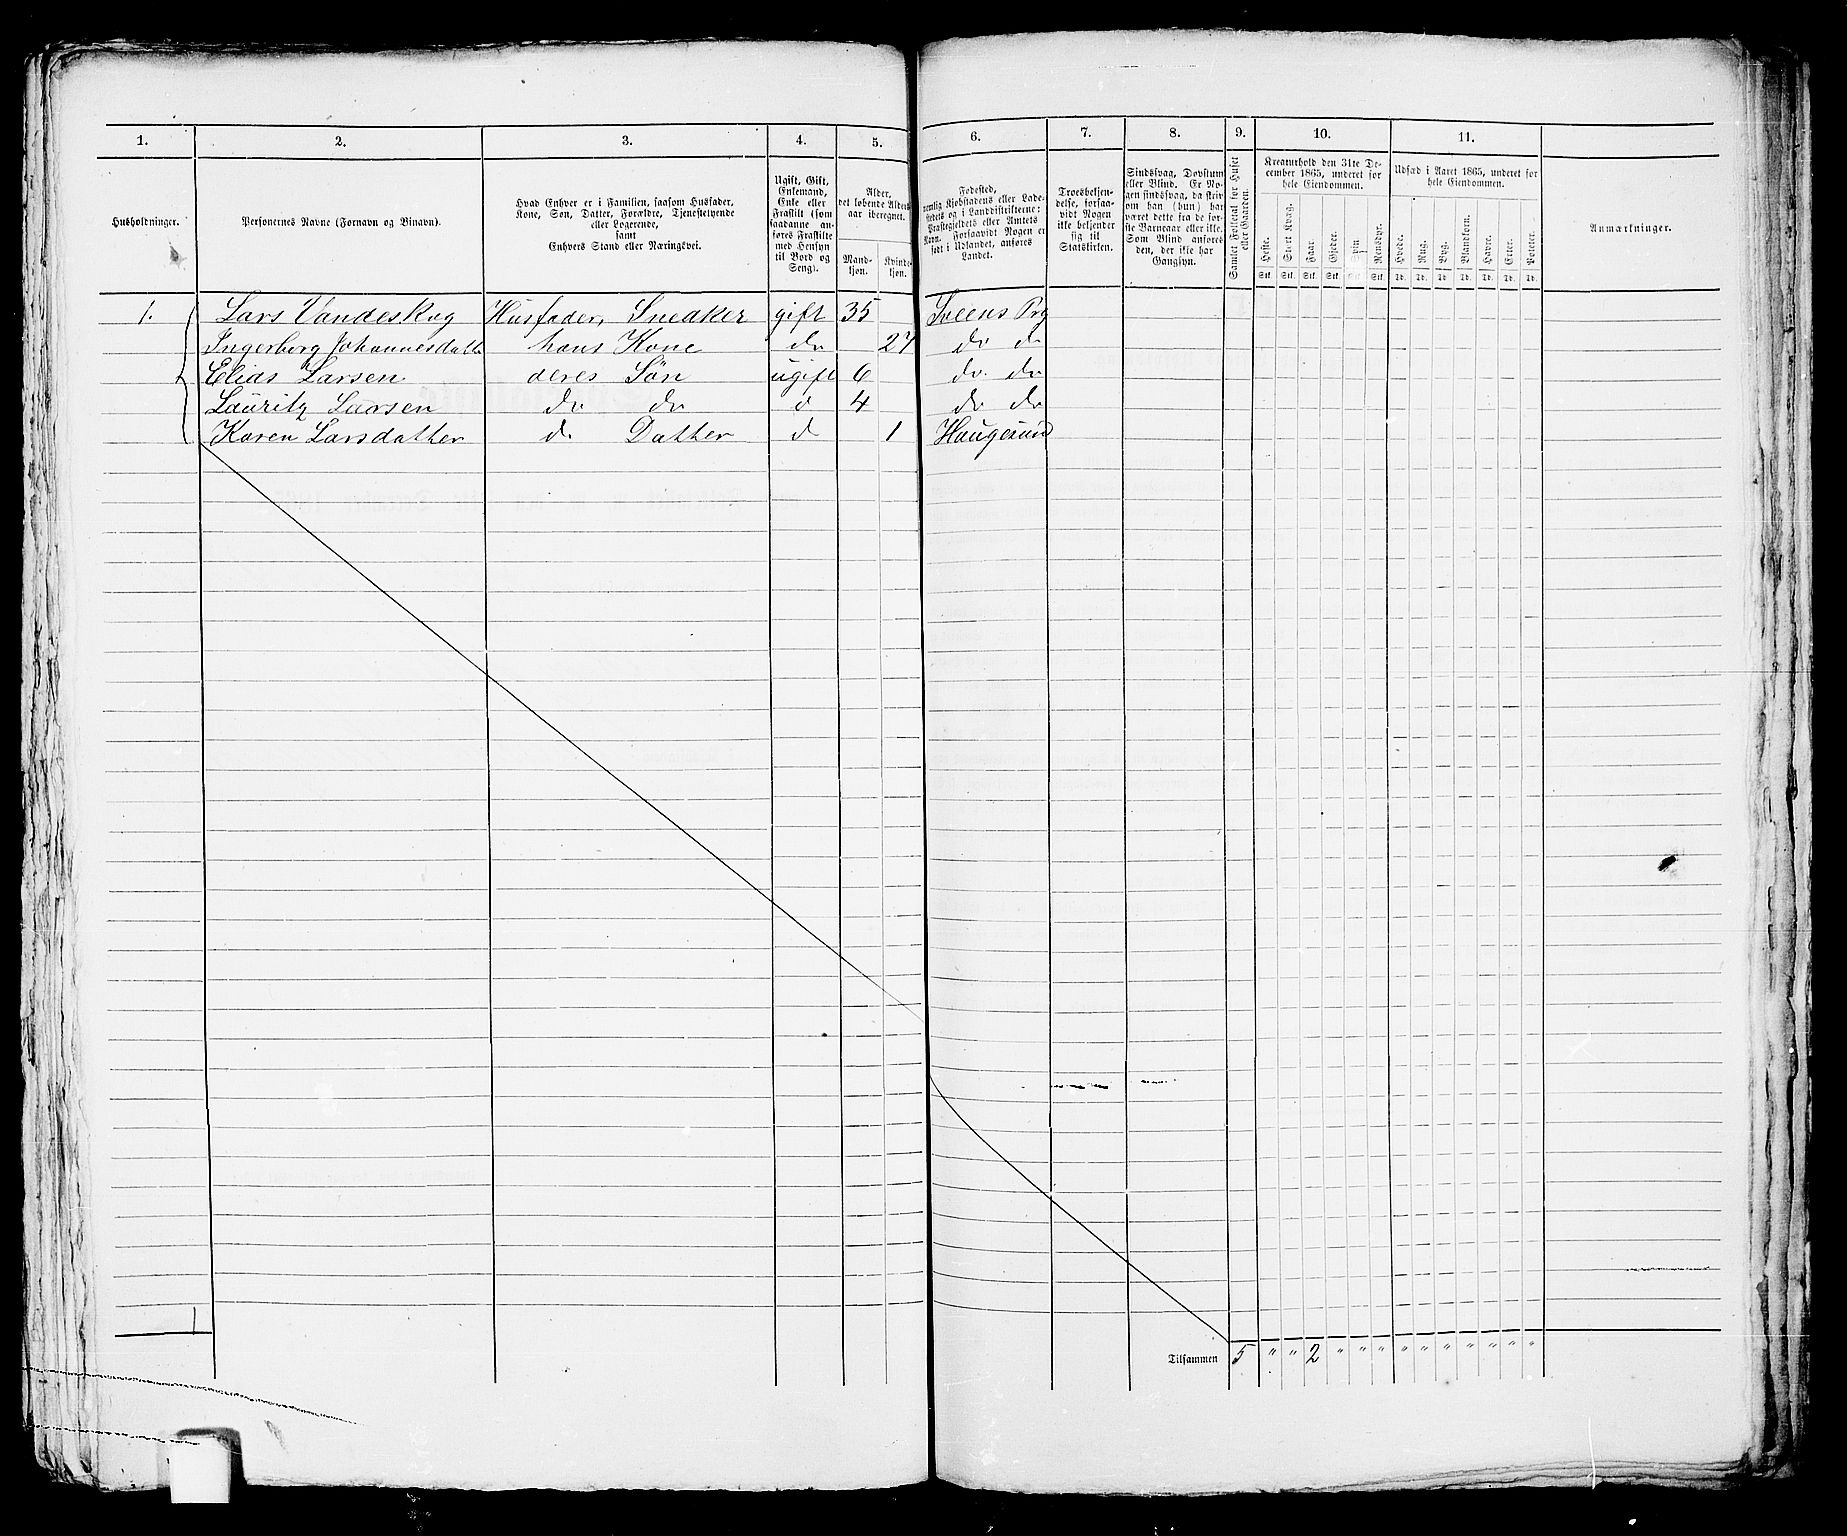 1. 2. 3. 4. 5. 6. 7. 8. 9. 10. 11.
Husholdninger.
Personernes Navne (Fornavn og Binavn).
Hvad Enhver er i Familien, saasom Husfader,
Kone, Søn, Datter, Forældre, Tjenestetyende
eller Logerende,
samt
Enhvers Stand eller Næringsvei.
Ugift, Gift,
Enkemand,
Enke eller
Fraskilt (som
saadanne an-
føres Fraskilte
med Hensyn
til Bord og
Seng).
Alder,
det løbende Alders-
aar iberegnet.
Mand-
kjøn.
Kvinde-
kjøn.
Fødested,
nemlig Kjøbstadens eller Lade-
stedets og i Landdistrikterne:
Præstegjeldets eller Amtets
Navn. Forsaavidt Nogen er
født i Udlandet, anføres
Landet.
Troesbekjen-
delse, forsaa-
vidt Nogen
ikke bekjender
sig til
Statskirken.
Sindssvag, Døvstum
eller Blind. Er No-
gen sindssvag, da skriv
om han (hun) har
været dette fra de før-
ste Barneaar eller ikke.
Som Blind anføres
den, der ikke har
Gangsyn.
Samlet Folketal for Huset
eller Gaarden.
Kreaturhold den 31te De-
cember 1865, underet for
hele Eiendommen.
Heste. Stort Kvæg. Faar. Gjeder. Svin. Rensdyr.
Stk. Stk. Stk. Stk. Stk. Stk.
Udsæd i Aaret 1865, underet for
hele Eiendommen.
Hvede. Rug. Byg. Blandkorn. Havre. Erter. Poteter.
Td. Td. Td. Td. Td. Td. Td.
Anmærkninger.
1. Lars Vandeskog Husfader, Snedker gift 35 Sveens Prg
Ingerborg Johannesdatter hans Kone do 27 do do
Elias Larsen deres Søn ugift 6 do. do
Lauritz Larsen do do d 4 do do
Karen Larsdatter d. Datter d 1 Haugesund
1
Tilsammen 5 " " 2 " " " " " " " " " "